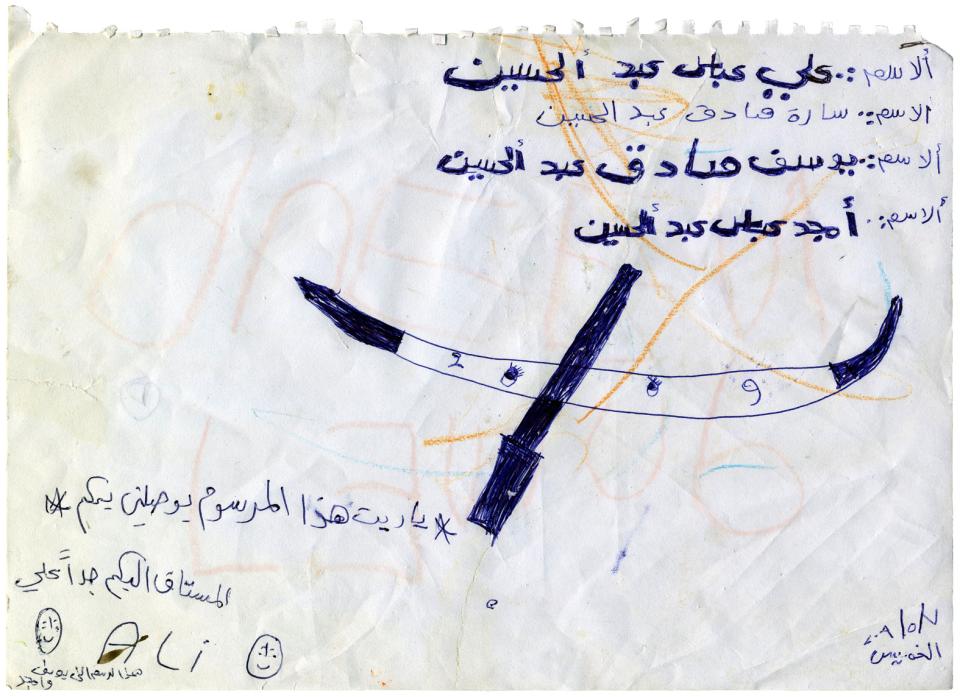 ألاسم:. علي عباس عبد ألحسين
الاسم:. سارة صادق عبد الحسين
ألاسم:. يوسف صادق عبد ألحسين
ألاسم:. أمجد عباس عبد ألحسين
2 9
* ياريت هذا المرسوم يوصلني يمكم *
المستاق اليكم جداً علي
ALi
هذا الرسم الى يوسف
وامجد
الخميس